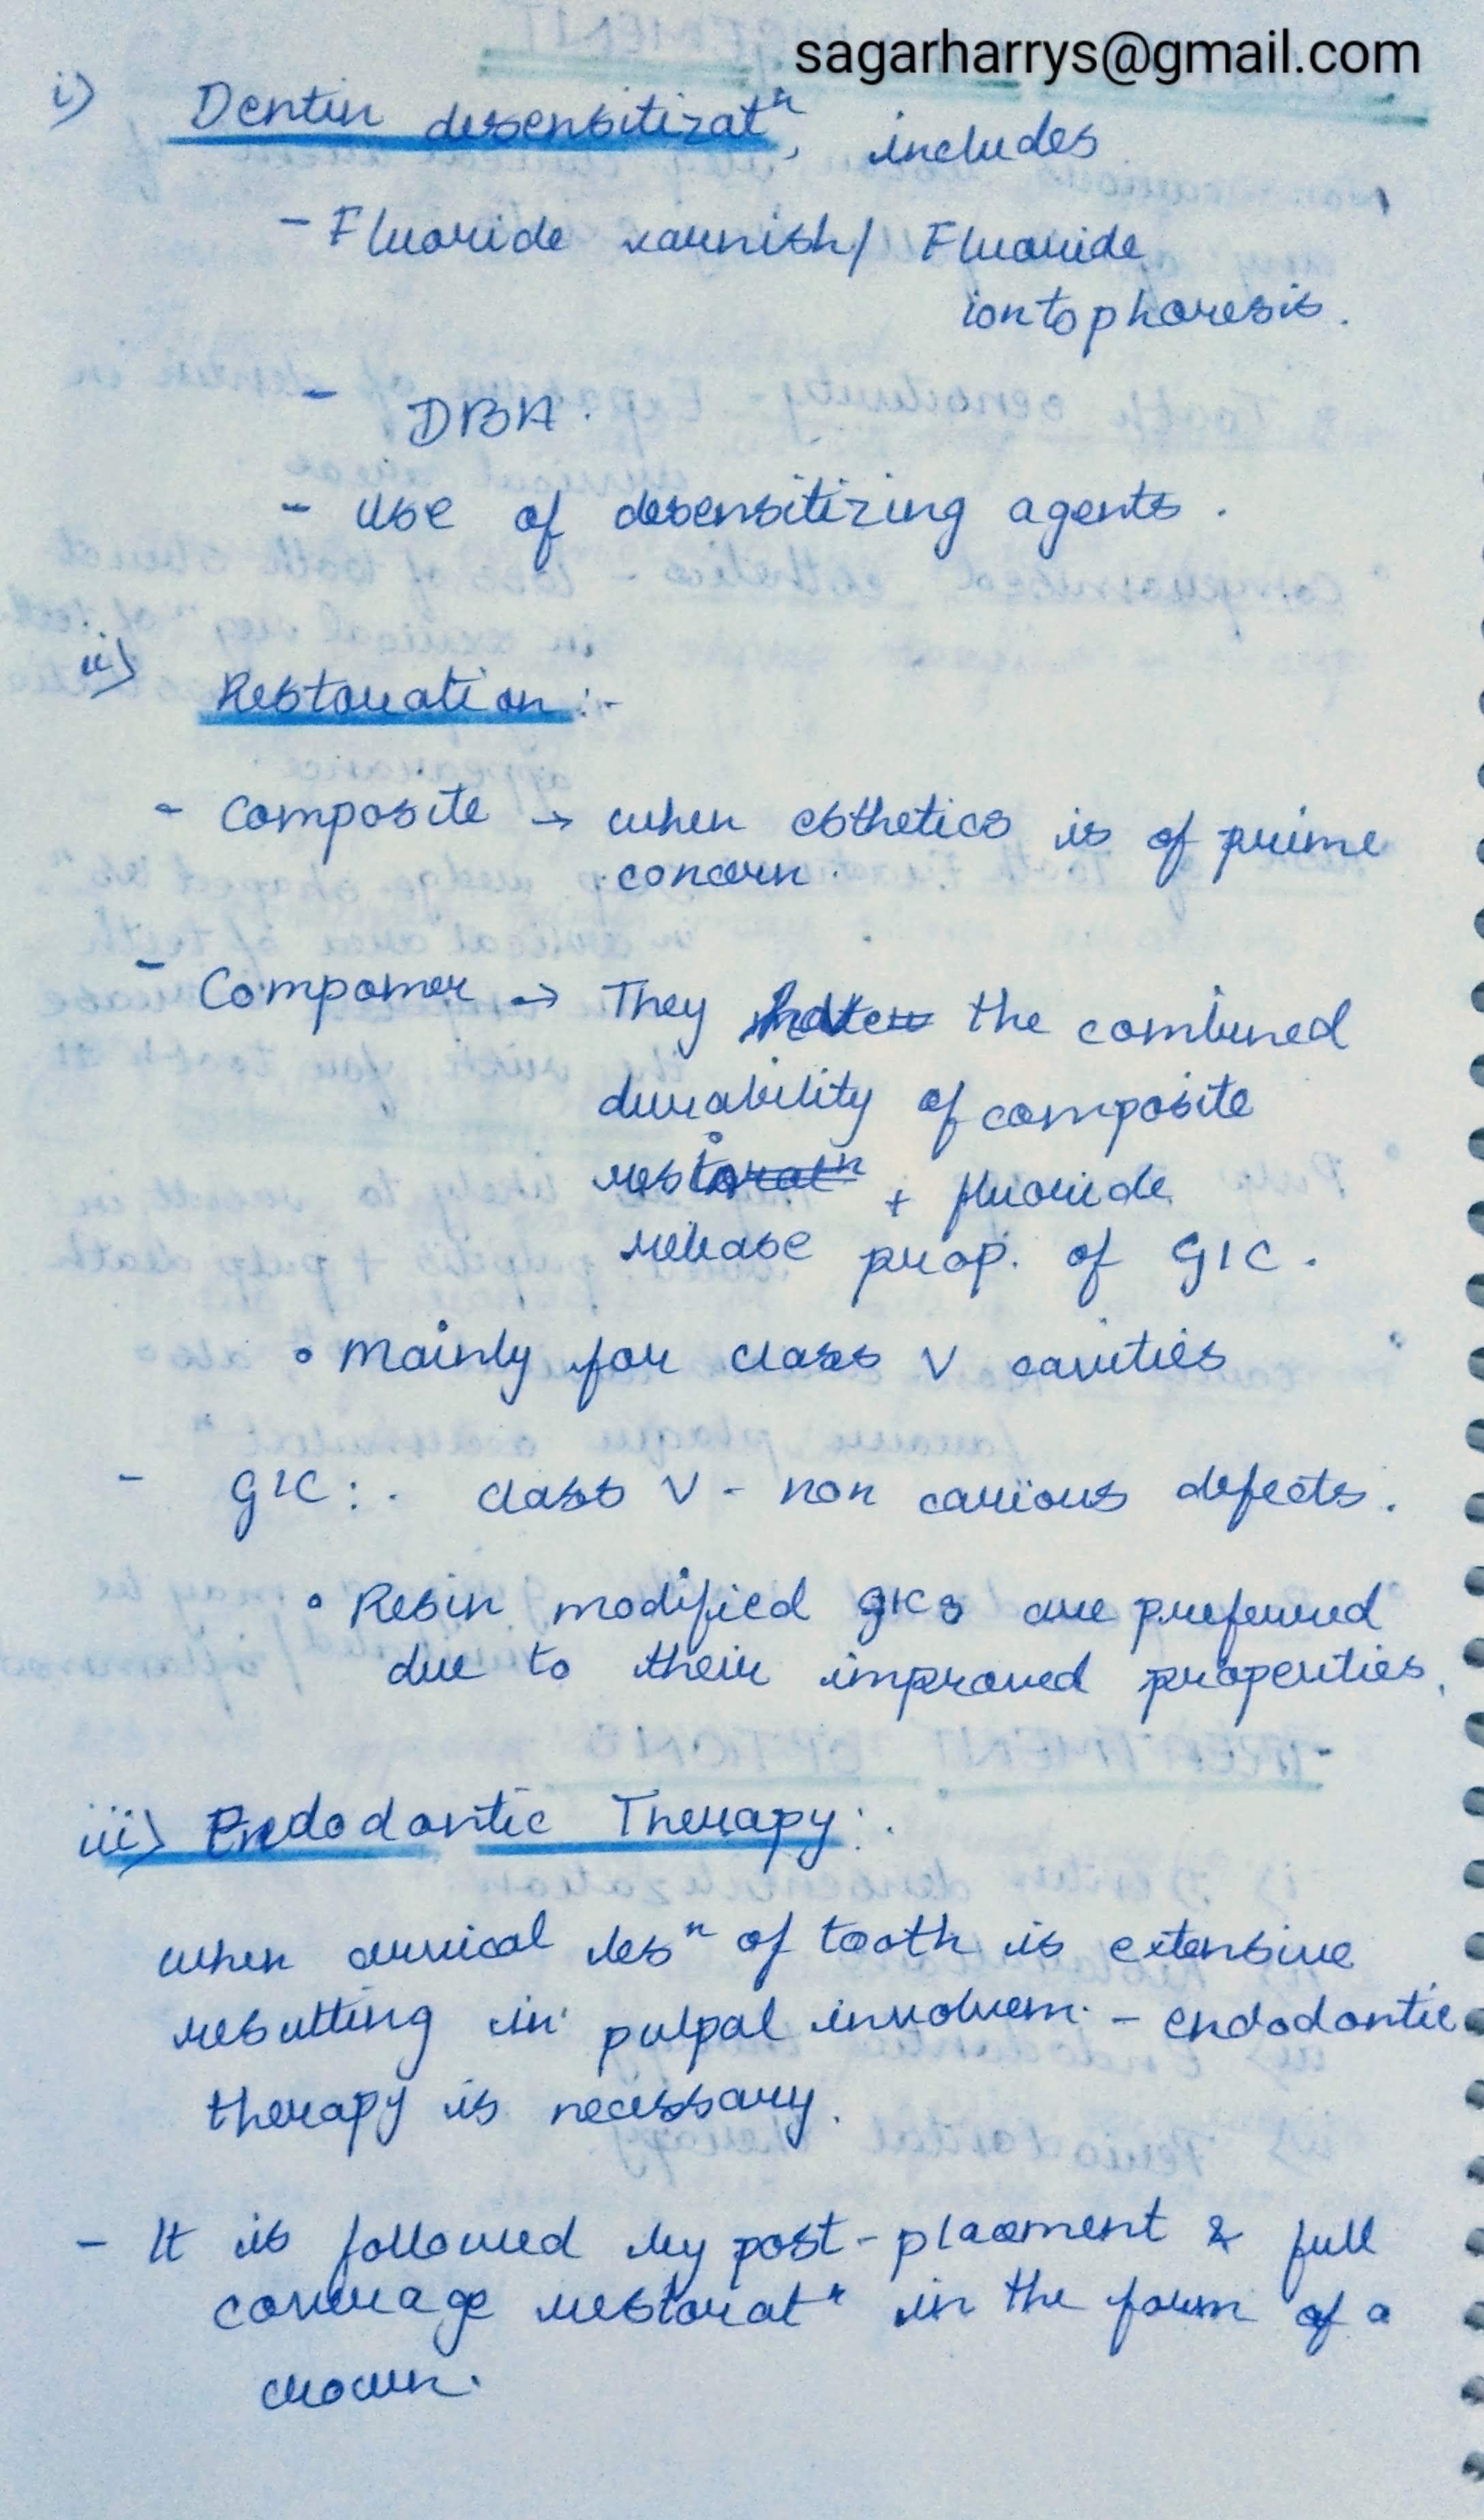 sagarharrys@gmail.com
i) Dentin desensitizatⁿ, includes
- Fluoride varnish/ Fluoride
iontophoresis.
- DBA.
- Use of desensitizing agents.
ii) Restoration:-
- Composite → when esthetics is of prime
concern.
- Compomer → They have the combined
durability of composite
restoratⁿ + fluoride
release prop. of GIC.
• Mainly for class V cavities
- GIC:- class V - non carious defects.
• Resin modified GICs are preferred
due to their improved properties.
iii) Endodontic Therapy:-
when cervical lesⁿ of tooth is extensive
resulting in pulpal involvem. - endodontic
therapy is necessary.
- It is followed by post-placement & full
coverage restoratⁿ in the form of a
crown.